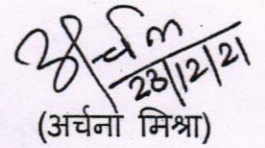 अर्चना
23/12/21
(अर्चना मिश्रा)